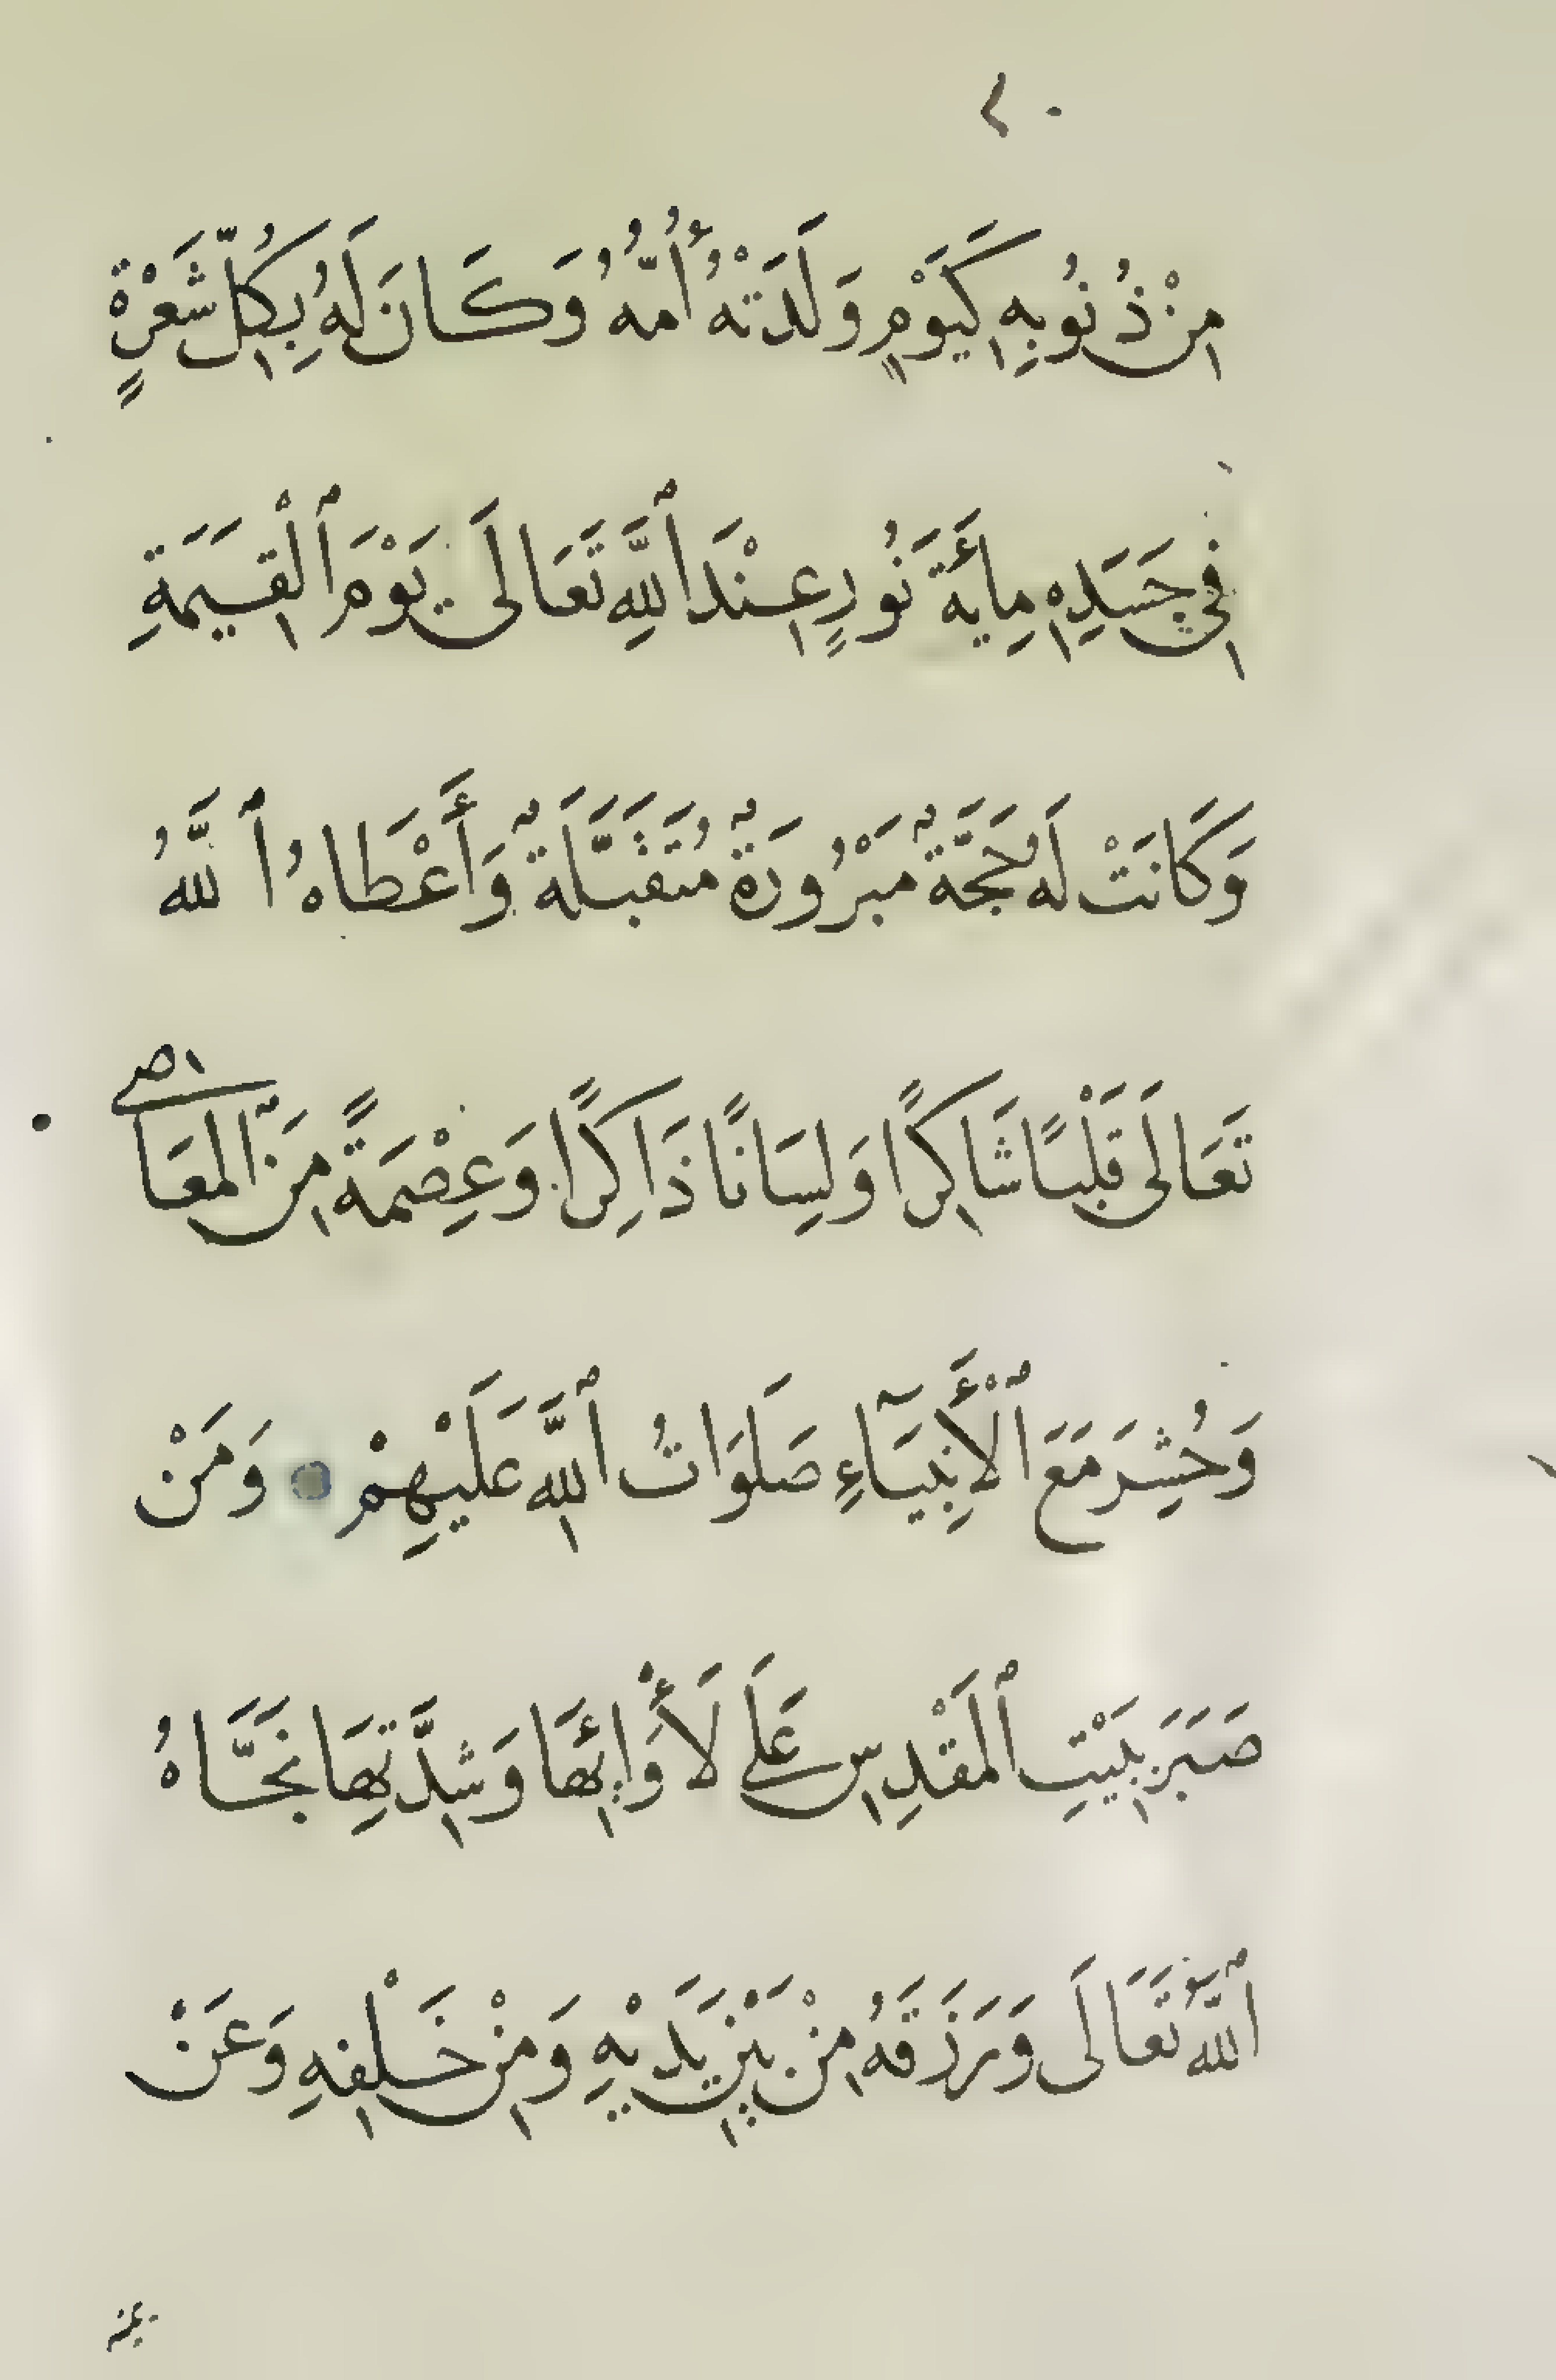 ٢٠
مِنْ ذُنُوبِهِ كَيَوْمٍ وَلَدَتْهُ أُمُّهُ وَكَانَ لَهُ بِكُلِّ شَعْرَةٍ
فِي جَسَدِهِ مِائَةَ نُورٍ عِنْدَ ٱللَّهِ تَعَالَى يَوْمَ ٱلْقِيمَةِ
وَكَانَتْ لَهُ حَجَّةٌ مَبْرُورَةٌ مُتَقَبَّلَةٌ وَأَعْطَاهُ ٱللَّهُ
تَعَالَى قَلْبًا شَاكِرًا وَلِسَانًا ذَاكِرًا وَعِصْمَةً مِنَ ٱلمَعَاصِي
وَحُشِرَ مَعَ ٱلْأَنْبِيَآءِ صَلَوَاتُ ٱللَّهِ عَلَيْهِمْ وَمَنْ
صَبَرَ بِبَيْتِ ٱلمَقْدِسِ عَلَى لَأْوَائِهَا وَشِدَّتِهَا نَجَّاهُ
ٱللَّهُ تَعَالَى وَرَزَقَهُ مِنْ بَيْنِ يَدَيْهِ وَمِنْ خَلْفِهِ وَعَنْ